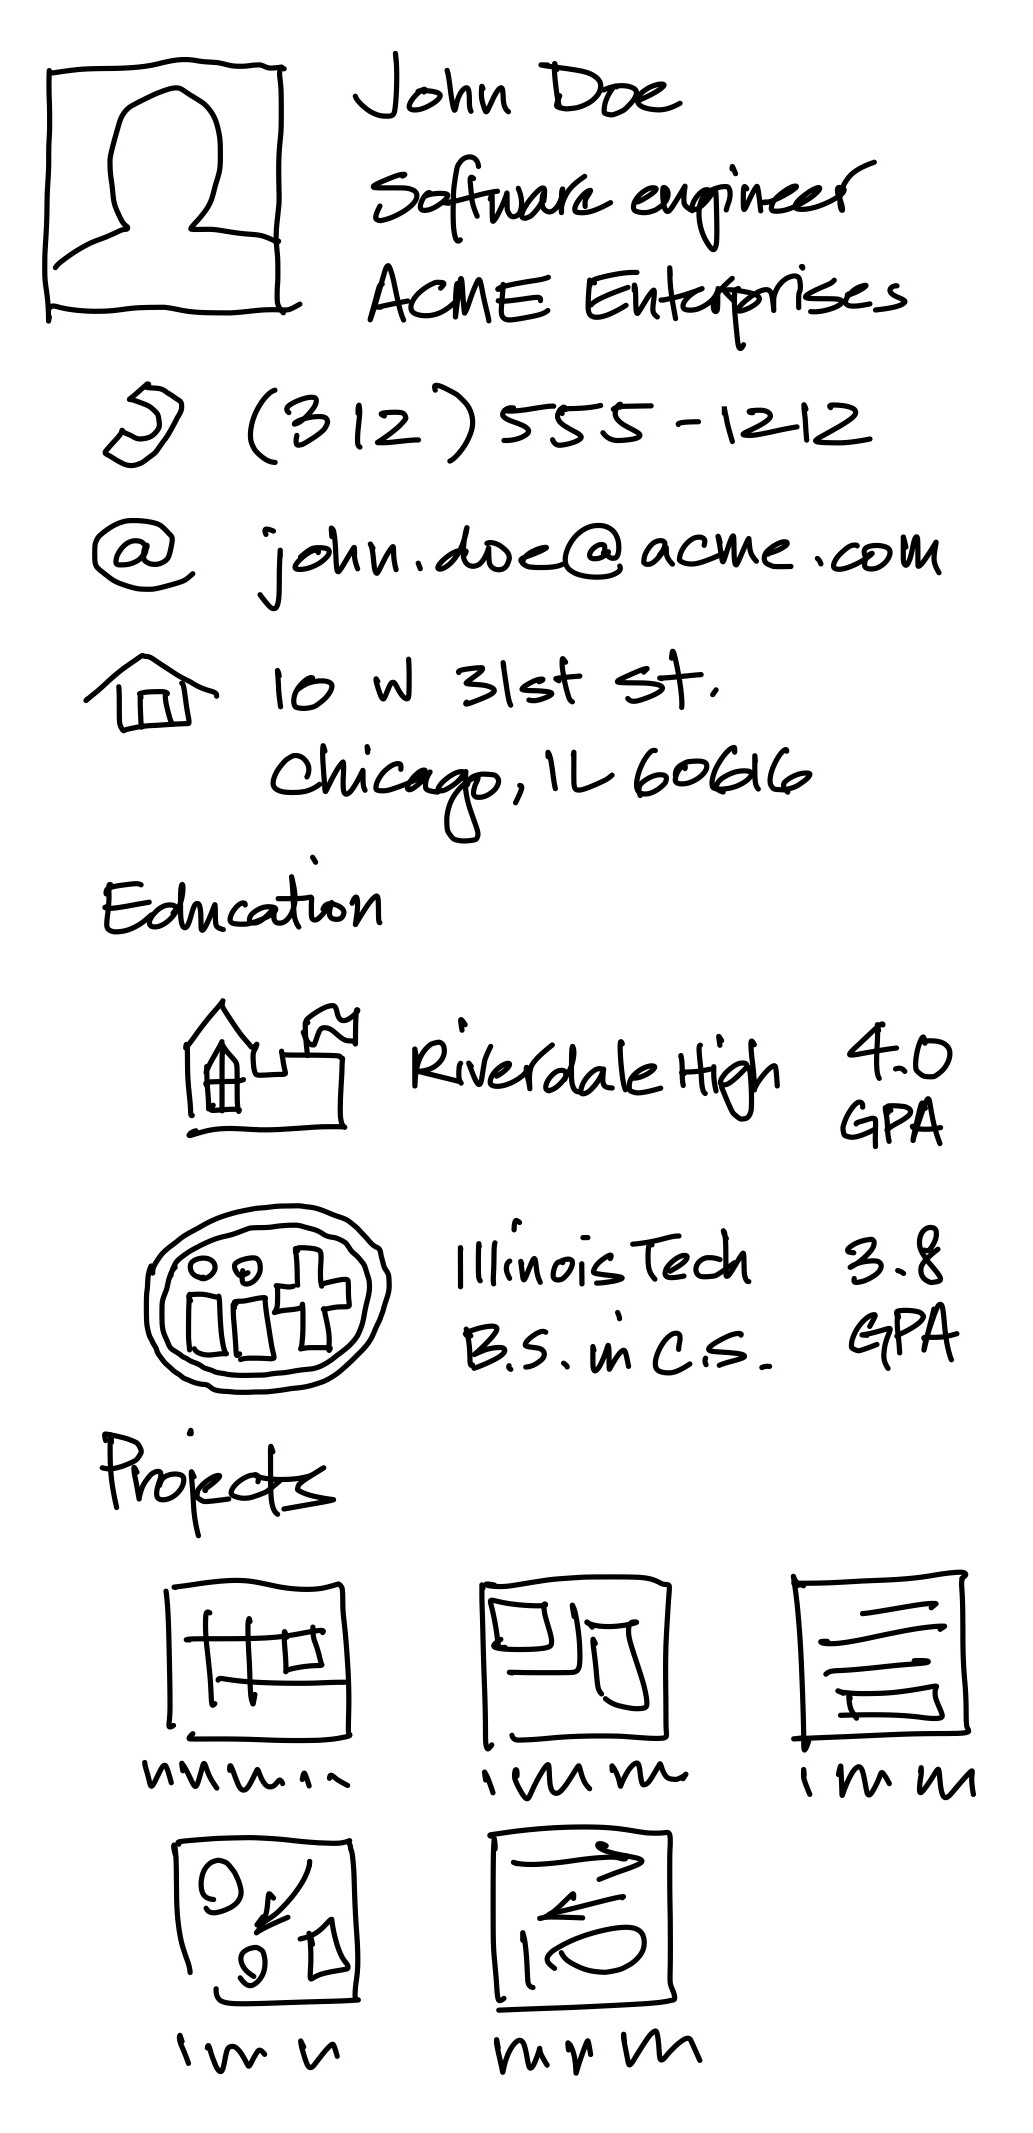 John Doe
Software engineer
ACME Enterprises
(312) 555-1212
@ john.doe@acme.com
10 W 31st St.
Chicago, IL 60616
Education
Riverdale High 4.0
GPA
Illinois Tech 3.8
B.S. in C.S. GPA
Projects